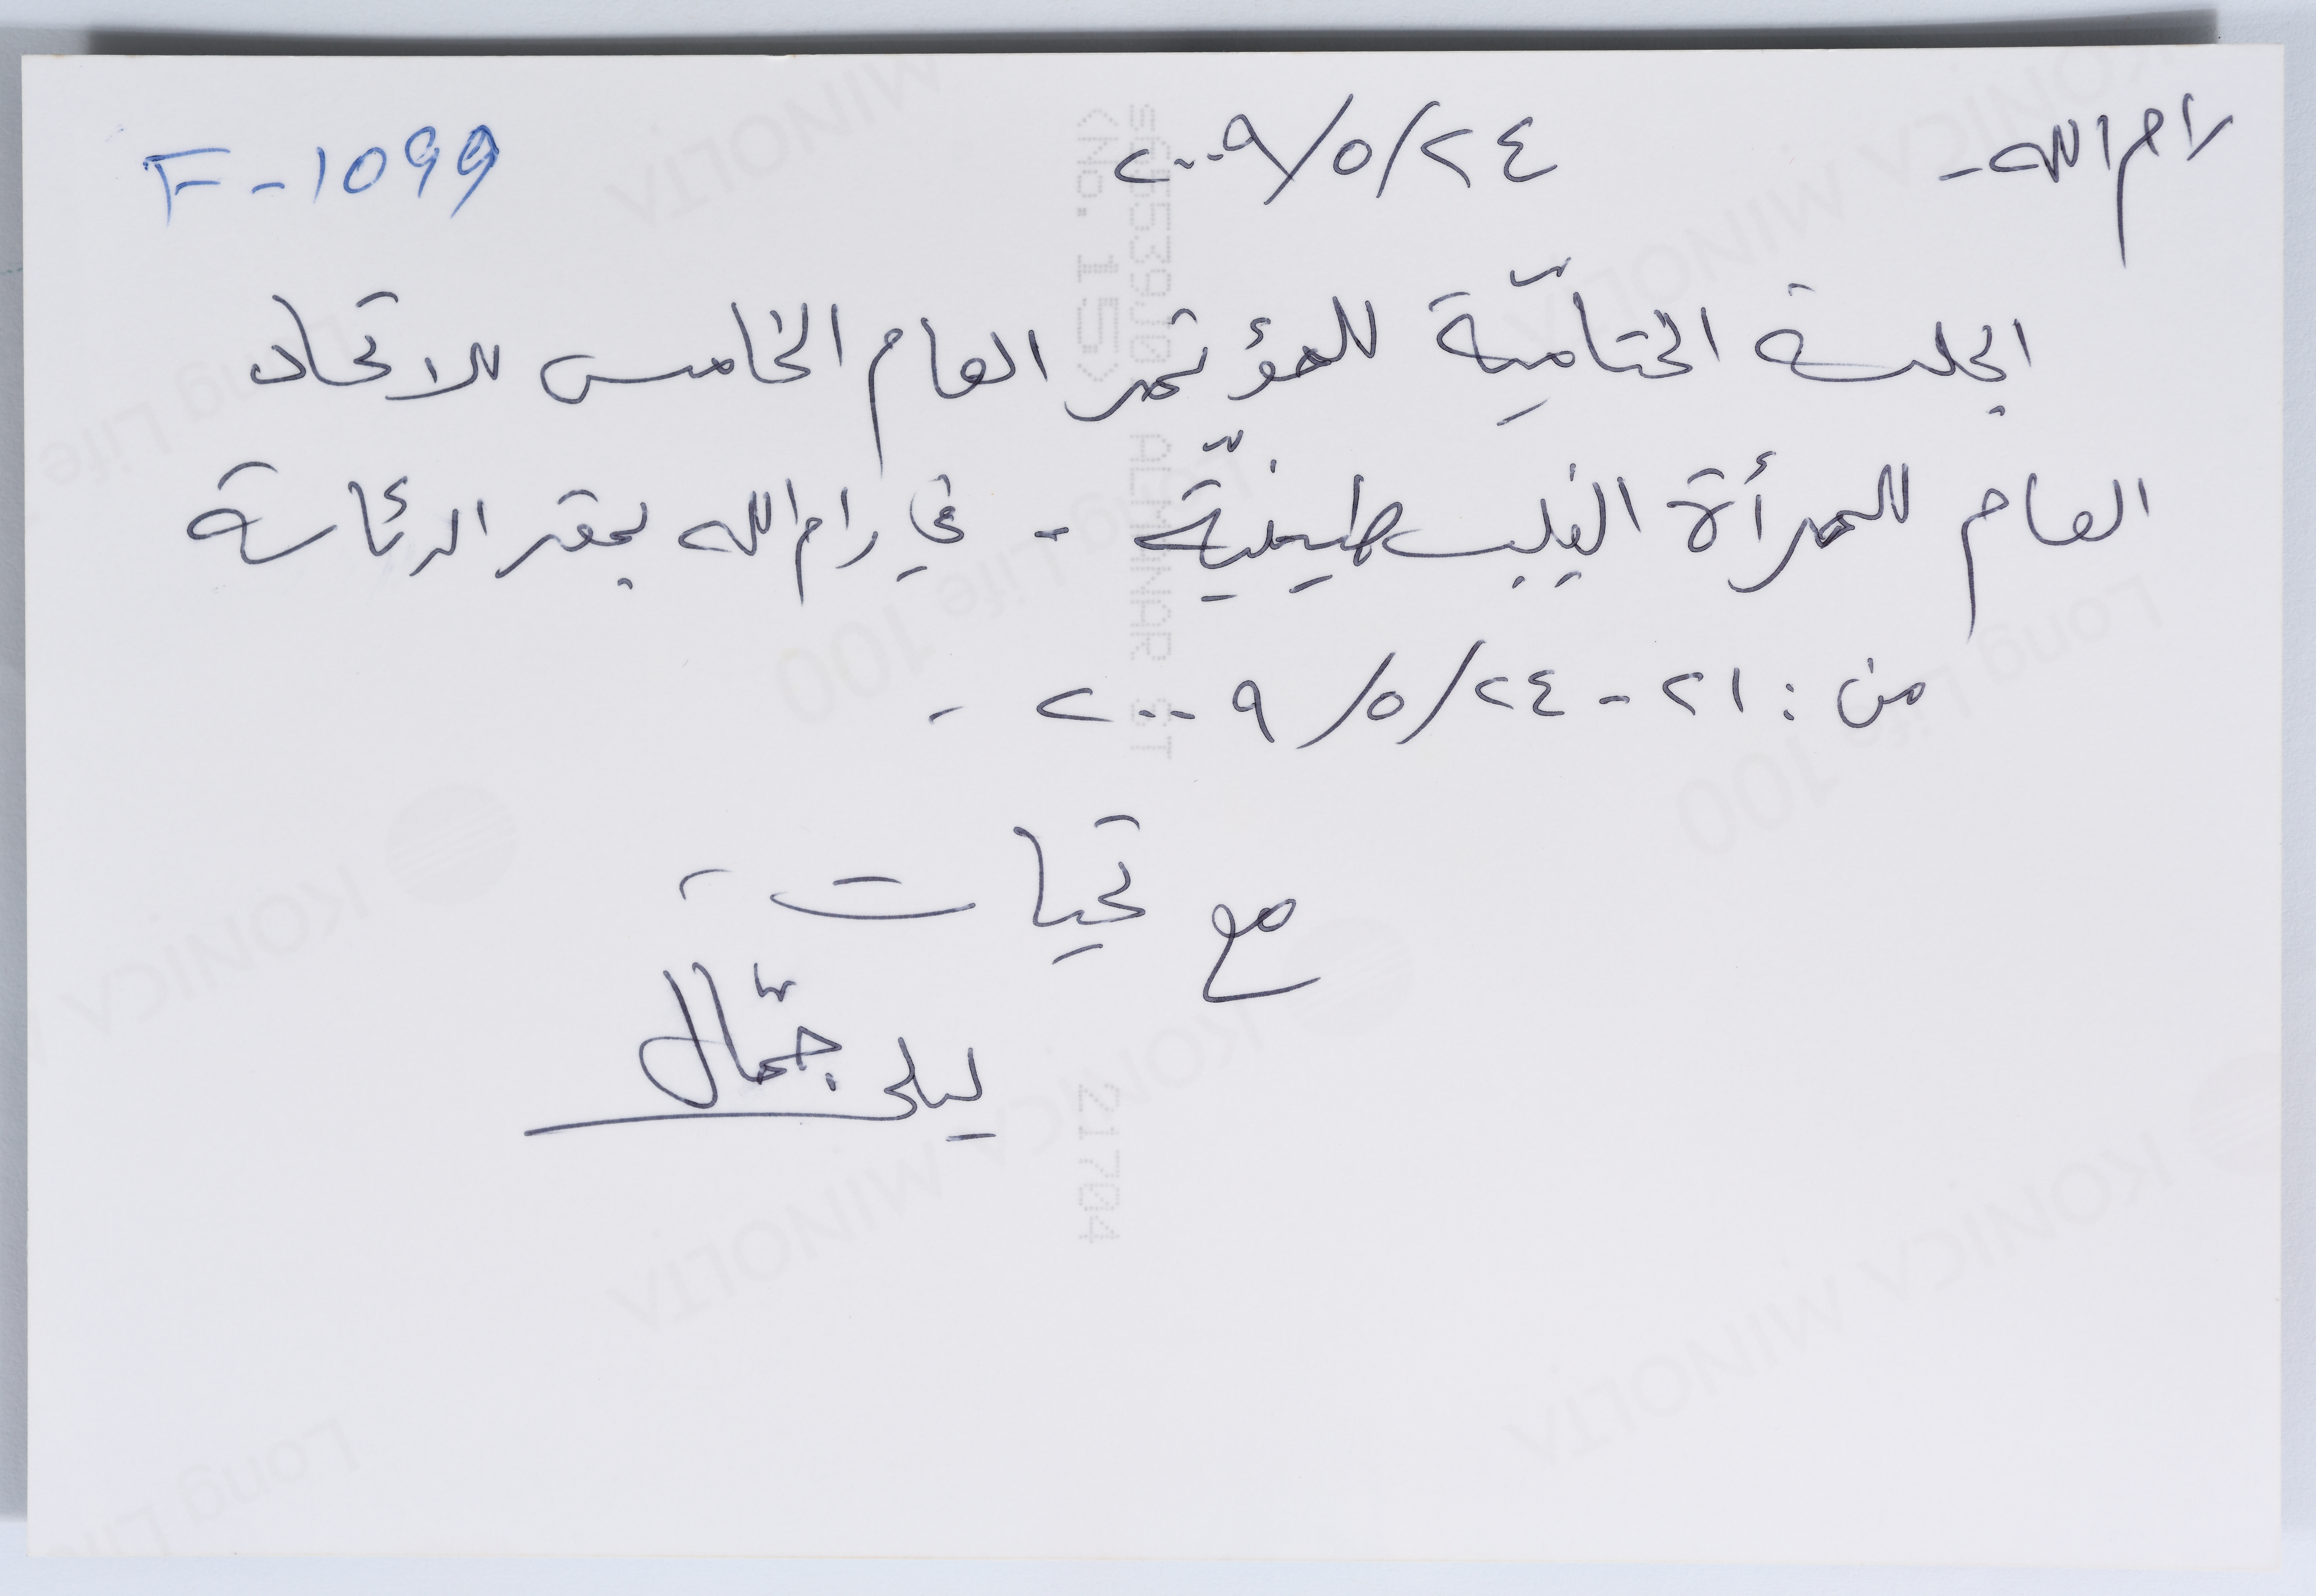 رام الله - ٢٤/٥/٢٠٠٩ F-1099
الجلسة الختاميّة للمؤتمر العام الخامس للاتحاد
العام للمرأة الفلسطينيّة - في رام الله بمقر الرئاسة
من : ٢١ - ٢٤/٥/٢٠٠٩ -
مع تحيات -
ليلى جمّال
KONICA MINOLTA
Long Life 100
<No. 15>
ALMANAR ST
21704